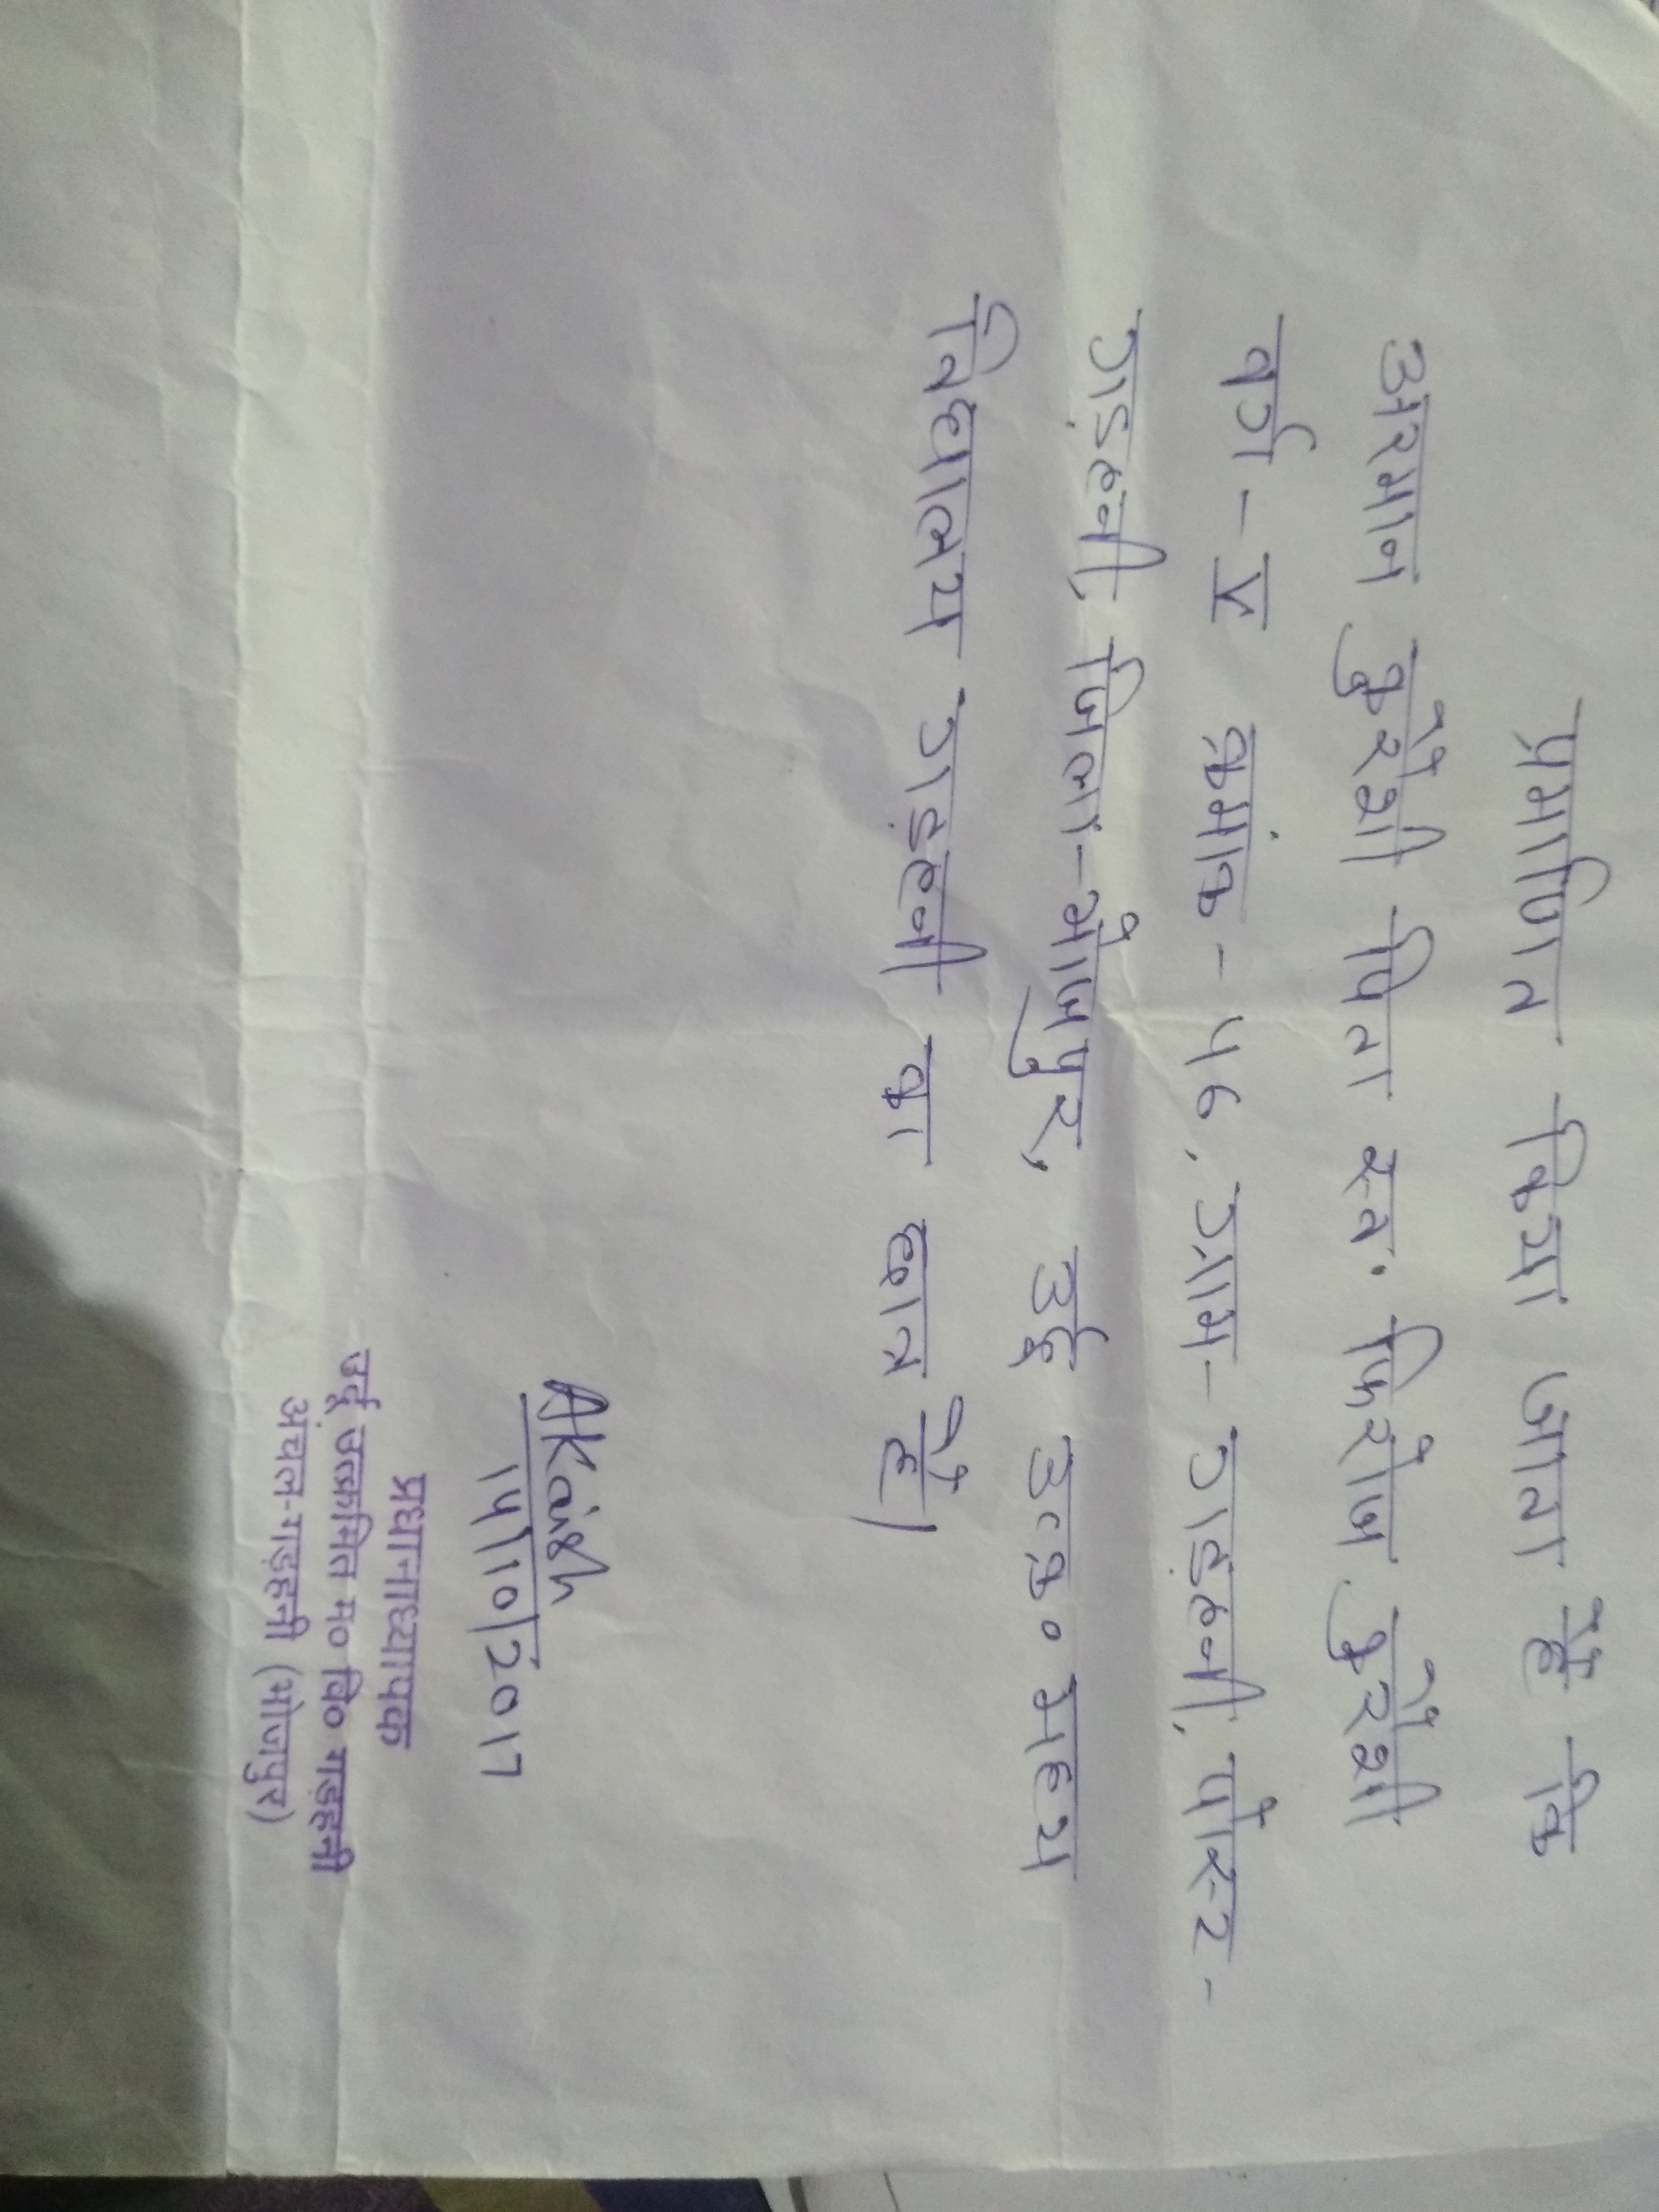 प्रमाणित किया जाता है कि
अरमान कुरैशी पिता स्व. फिरोज कुरैशी
वर्ग - V क्रमांक - 56, ग्राम - गड़हनी, पोस्ट -
गड़हनी, जिला - भोजपुर, उर्दू उत्क्र० मध्य
विद्यालय गड़हनी का छात्र है।
Akaish
14/10/2017
प्रधानाध्यापक
उर्दू उत्क्रमित म० वि० गड़हनी
अंचल-गड़हनी (भोजपुर)